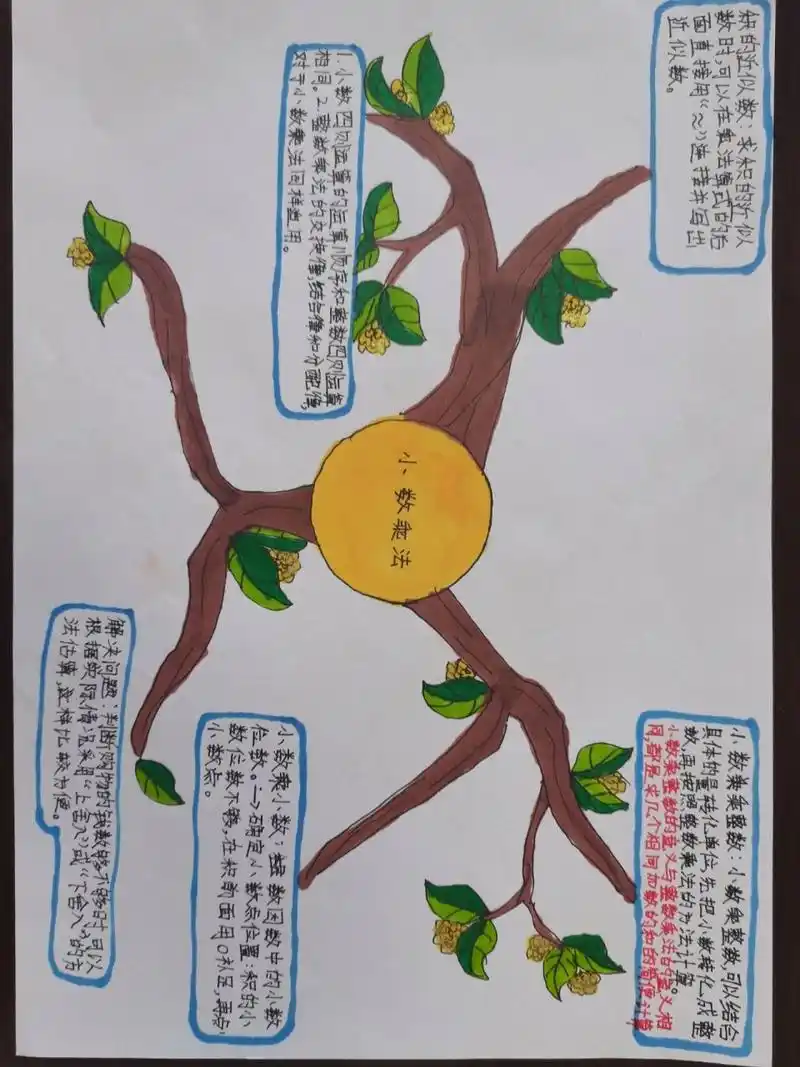 小数乘法
积的近似数：求积的近似
数时，可以在乘法算式的后
面直接用“≈”连接并写出
近似数。
1.小数四则运算的运算顺序和整数四则运算
相同。2.整数乘法的交换律，结合律和分配律，
对于小数乘法同样适用。
小数乘整数：小数乘整数，可以结合
具体的量转化单位，先把小数转化成整
数，再按照整数乘法的方法计算。
小数乘整数的意义与整数乘法的意义相
同，都是求几个相同加数的和的简便计算
小数乘小数：数因数中的小数
位数。→确定小数点位置：积的小
数位数不够，在积前面用0补足，再点
小数点。
解决问题：判断购物的钱数够不够时可以
根据实际情况采用“上舍入”或“下舍入”的方
法估算，这样比较方便。